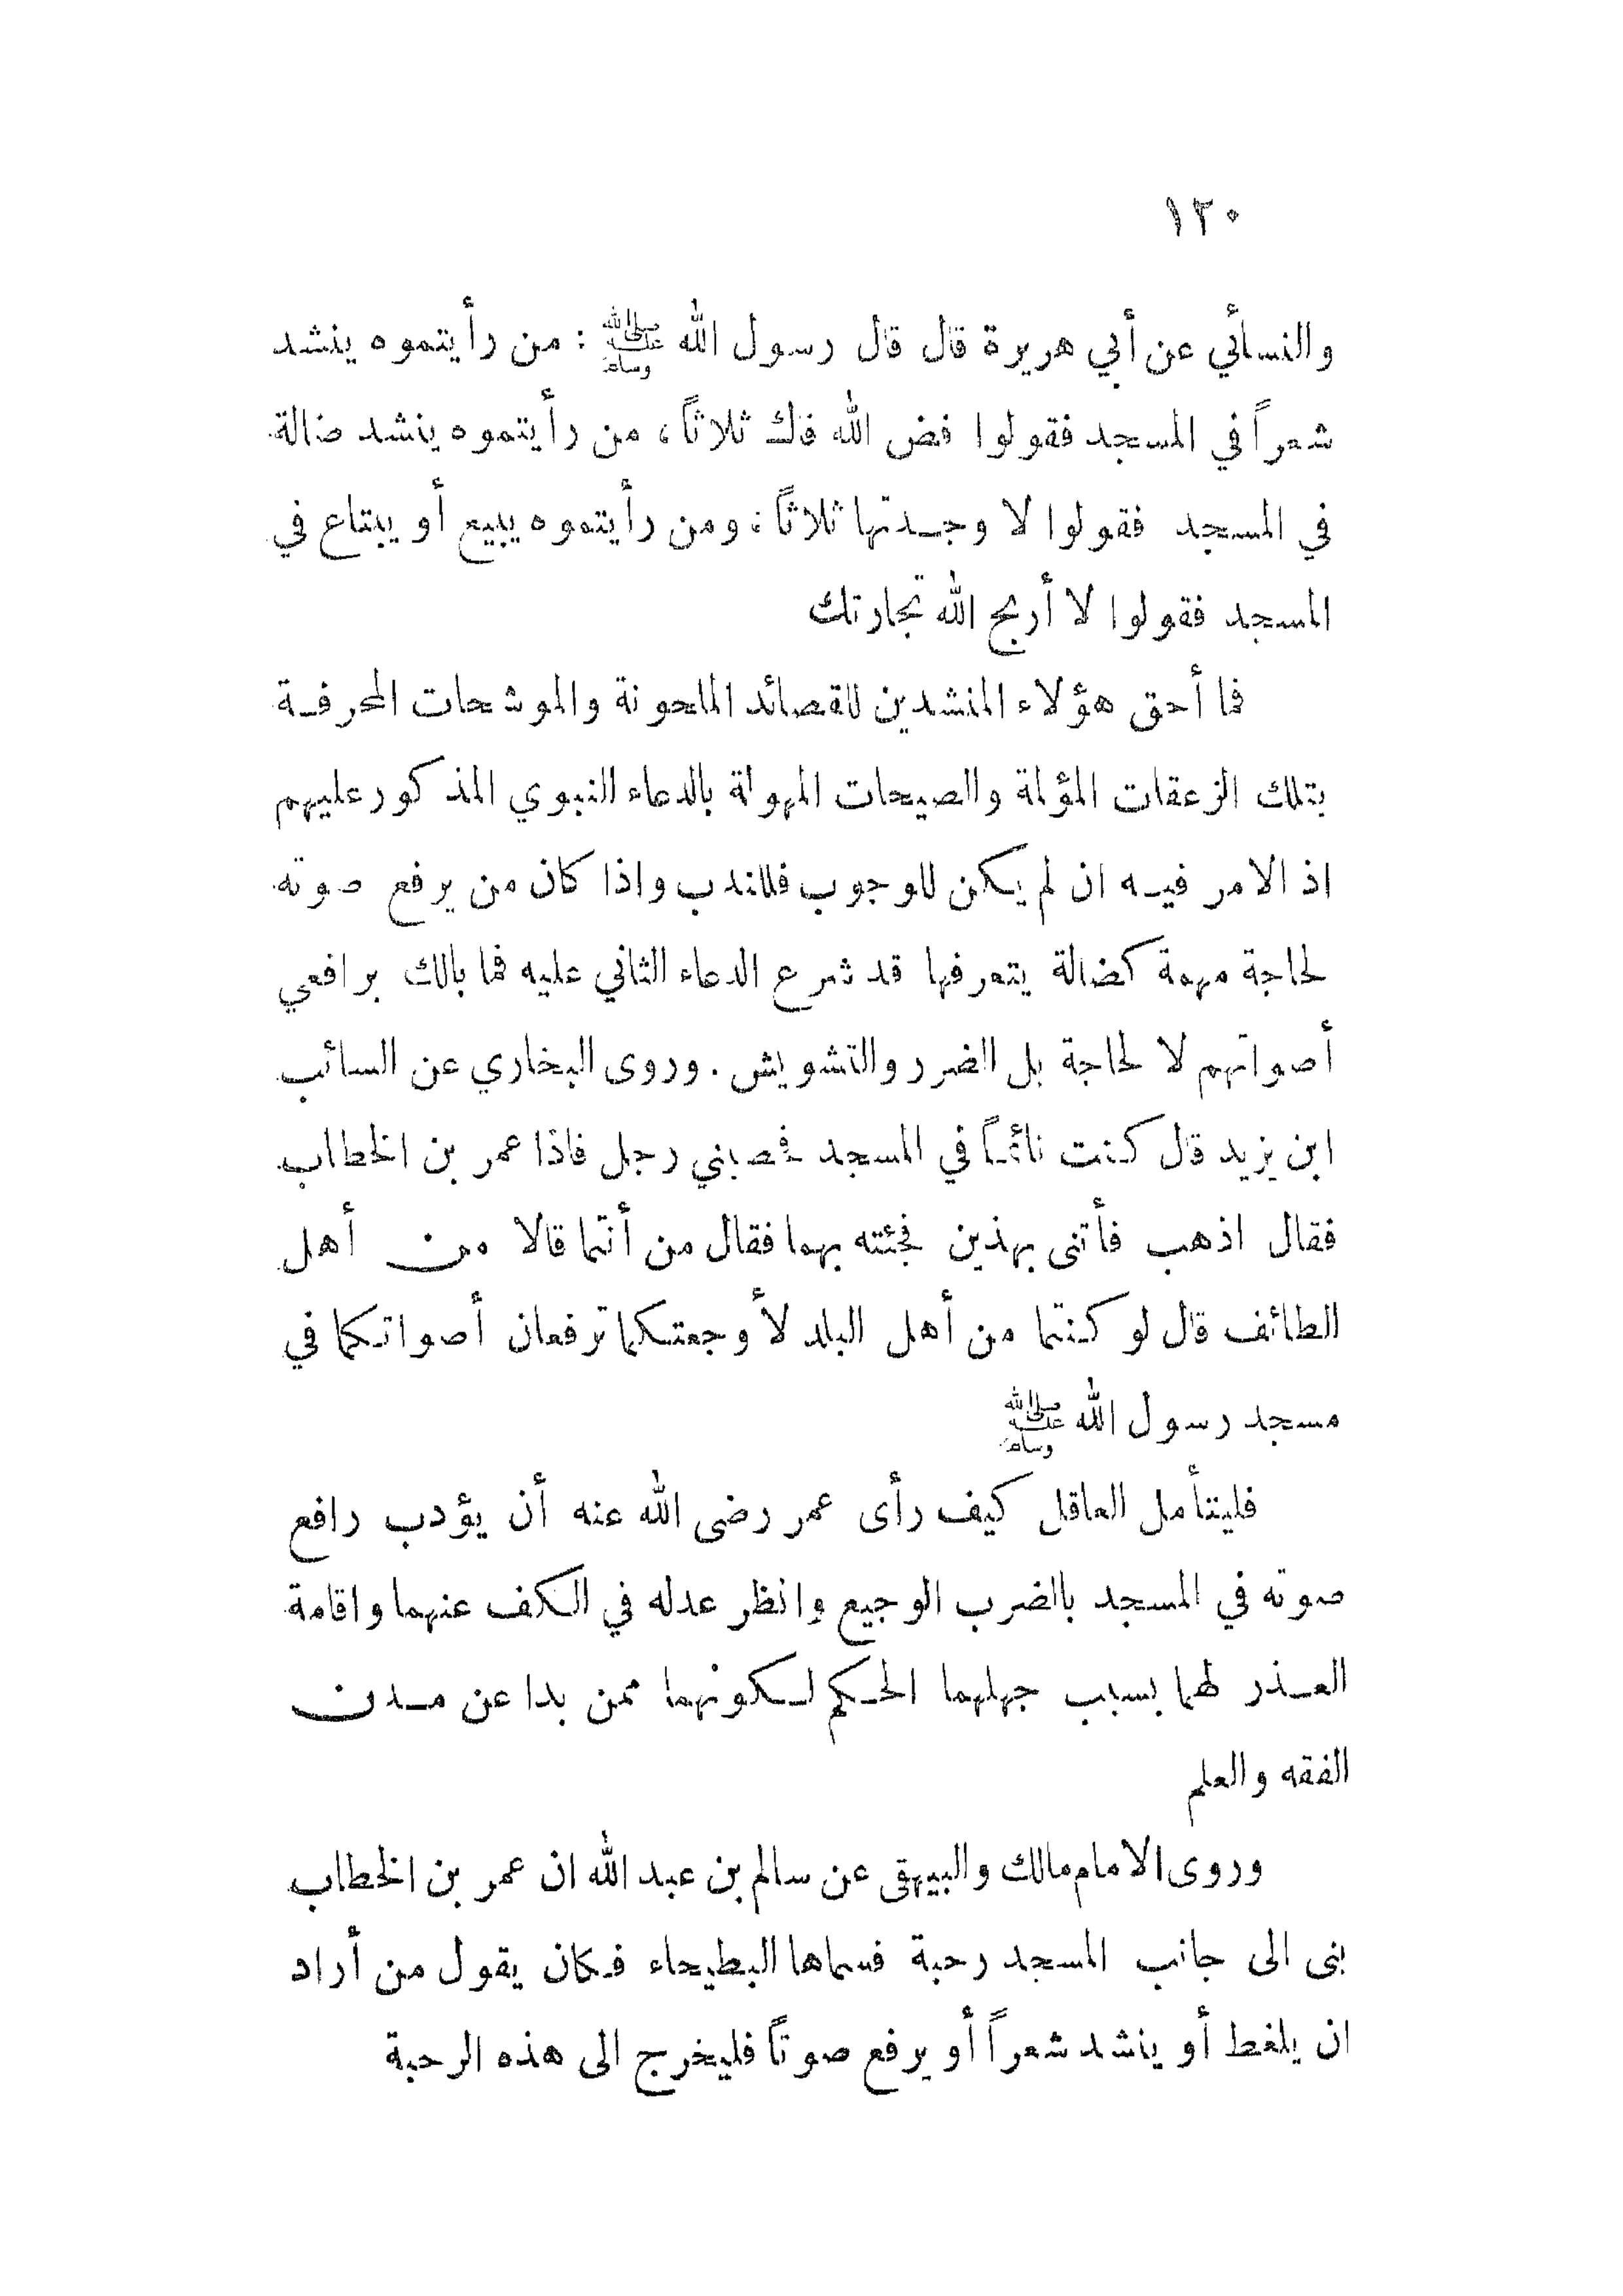 ١٢٠
والنسأئي عن أبي هريرة قال قال رسول الله ﷺ : من رأيتموه ينشد
شعراً في المسجد فقولوا فض الله فاك ثلاثاً ، من رأيتموه ينشد ضالة
في المسجد فقولوا لا وجدتها ثلاثاً ؛ ومن رأيتموه يبيع أو يبتاع في
المسجد فقولوا لا أربح الله تجارتك
فما أحق هؤلاء المنشدين للقصائد الملحونة والموشحات المحرفة
بتلك الزعقات المؤلمة والصيحات المهولة بالدعاء النبوي المذكور عليهم
اذ الامر فيه ان لم يكن للوجوب فللندب واذا كان من يرفع صوته
لحاجة مهمة كضالة يتعرفها قد شرع الدعاء الثاني عليه فما بالك برافعي
أصواتهم لا لحاجة بل الضرر والتشويش . وروى البخاري عن السائب
ابن يزيد قال كنت نائماً في المسجد فحصبني رجل فاذا عمر بن الخطاب
فقال اذهب فأتنى بهذين فجئته بهما فقال من أنتما قالا من أهل
الطائف قال لو كنتما من أهل البلد لأوجعتكما ترفعان أصواتكما في
مسجد رسول الله ﷺ
فليتأمل العاقل كيف رأى عمر رضى الله عنه أن يؤدب رافع
صوته في المسجد بالضرب الوجيع وانظر عدله في الكف عنهما واقامة
العذر لهما بسبب جهلهما الحكم لكونهما ممن بدا عن مدن
الفقه والعلم
وروى الامام مالك والبيهقى عن سالم بن عبد الله ان عمر بن الخطاب
بنى الى جانب المسجد رحبة فسماها البطيحاء فكان يقول من أراد
ان يلغط أو ينشد شعراً أو يرفع صوتاً فليخرج الى هذه الرحبة